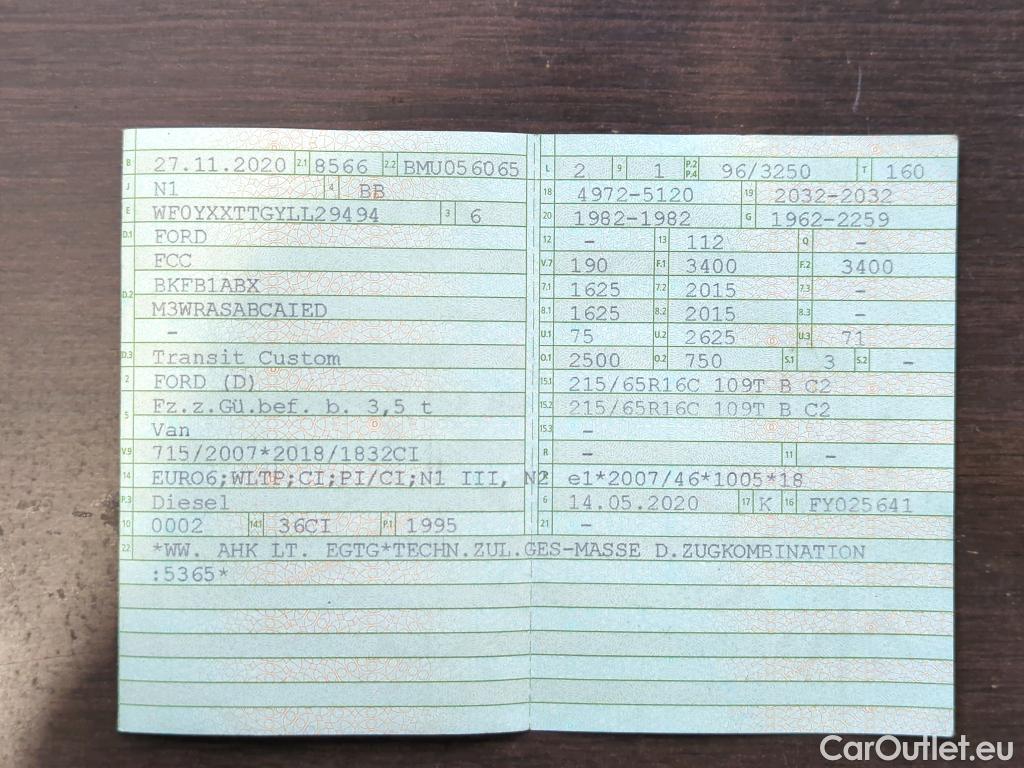 B 27.11.2020 2.1 8566 2.2 BMU056065
J N1 4 BB
E WF0YXXTTGYLL29494 3 6
D.1 FORD
FCC
D.2 BKFB1ABX
M3WRASABCAIED
–
D.3 Transit Custom
2 FORD (D)
5 Fz.z.Gü.bef. b. 3,5 t
Van
V.9 715/2007*2018/1832CI
14 EURO6;WLTP;CI;PI/CI;N1 III, N2
P.3 Diesel
10 0002 14.1 36CI P.1 1995
22 *WW. AHK LT. EGTG*TECHN.ZUL.GES-MASSE D.ZUGKOMBINATION
:5365*
L 2 9 1 P.2 P.4 96/3250 T 160
18 4972-5120 19 2032-2032
20 1982-1982 G 1962-2259
12 – 13 112 Q –
V.7 190 F.1 3400 F.2 3400
7.1 1625 7.2 2015 7.3 –
8.1 1625 8.2 2015 8.3 –
U.1 75 U.2 2625 U.3 71
O.1 2500 O.2 750 S.1 3 S.2 –
15.1 215/65R16C 109T B C2
15.2 215/65R16C 109T B C2
15.3 –
R – 11 –
K e1*2007/46*1005*18
6 14.05.2020 17 K 16 FY025641
21 –
CarOutlet.eu